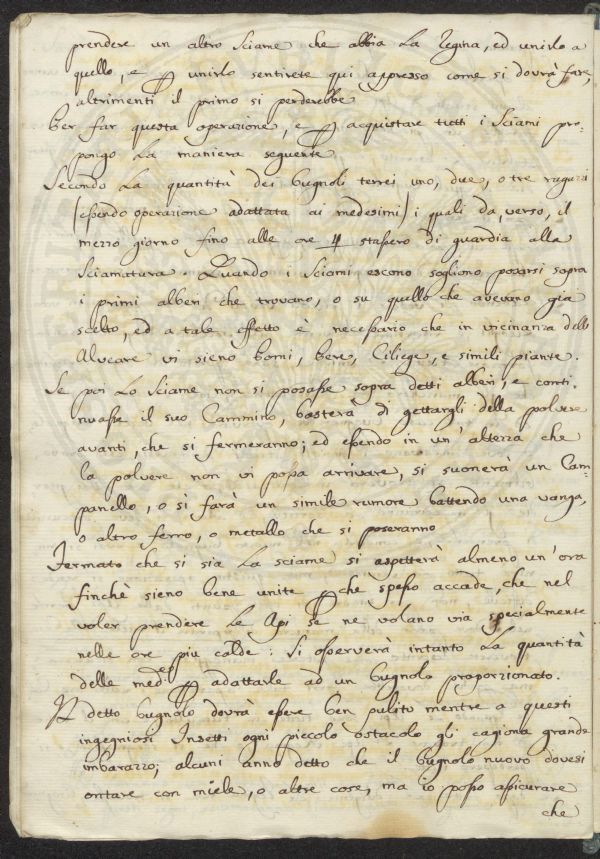 prendere un altro sciame che abbia la Regina, ed unirlo a
quello, e p unirlo sentirete qui appresso come si dovrà fare,
altrimenti il primo si perderebbe
Per far questa operazione, e p acquistare tutti i sciami pro-
pongo la maniera seguente
Secondo la quantità dei bugnoli terrei uno, due, o tre ragazzi
(essendo operazione adattata ai medesimi) i quali da, verso, il
mezzo giorno fino alle ore stassero di guardia alla
sciamatura. Quando i sciami escono sogliono posarsi sopra
i primi alberi che trovano, o su quello che avevano già
scelto, ed a tale effetto è necessario che in vicinanza dello
Alveare vi sieno Pomi, Pere, Ciliege, e simili piante.
Se poi lo sciame non si posasse sopra detti alberi, e conti-
nuasse il suo Cammino, basterà di gettargli della polvere
avanti, che si fermeranno; ed essendo in un'altezza che
la polvere non vi possa arrivare, si suonerà un Cam-
panello, o si farà un simile rumore battendo una vanga,
o altro ferro, o metallo che si poseranno
Fermato che si sia la sciame si aspetterà almeno un'ora
finchè sieno bene unite p che spesso accade, che nel
voler prendere le Api se ne volano via specialmente
nelle ore piu calde: si osserverà intanto la quantità
delle med.es p adattarle ad un bugnolo proporzionato.
Il detto bugnolo dovrà essere ben pulito mentre a questi
ingegniosi Insetti ogni piccolo ostacolo gli cagiona grande
imbarazzo; alcuni anno detto che il bugnolo nuovo dovesi
ontare con miele, o altre cose, ma io posso assicurare
che